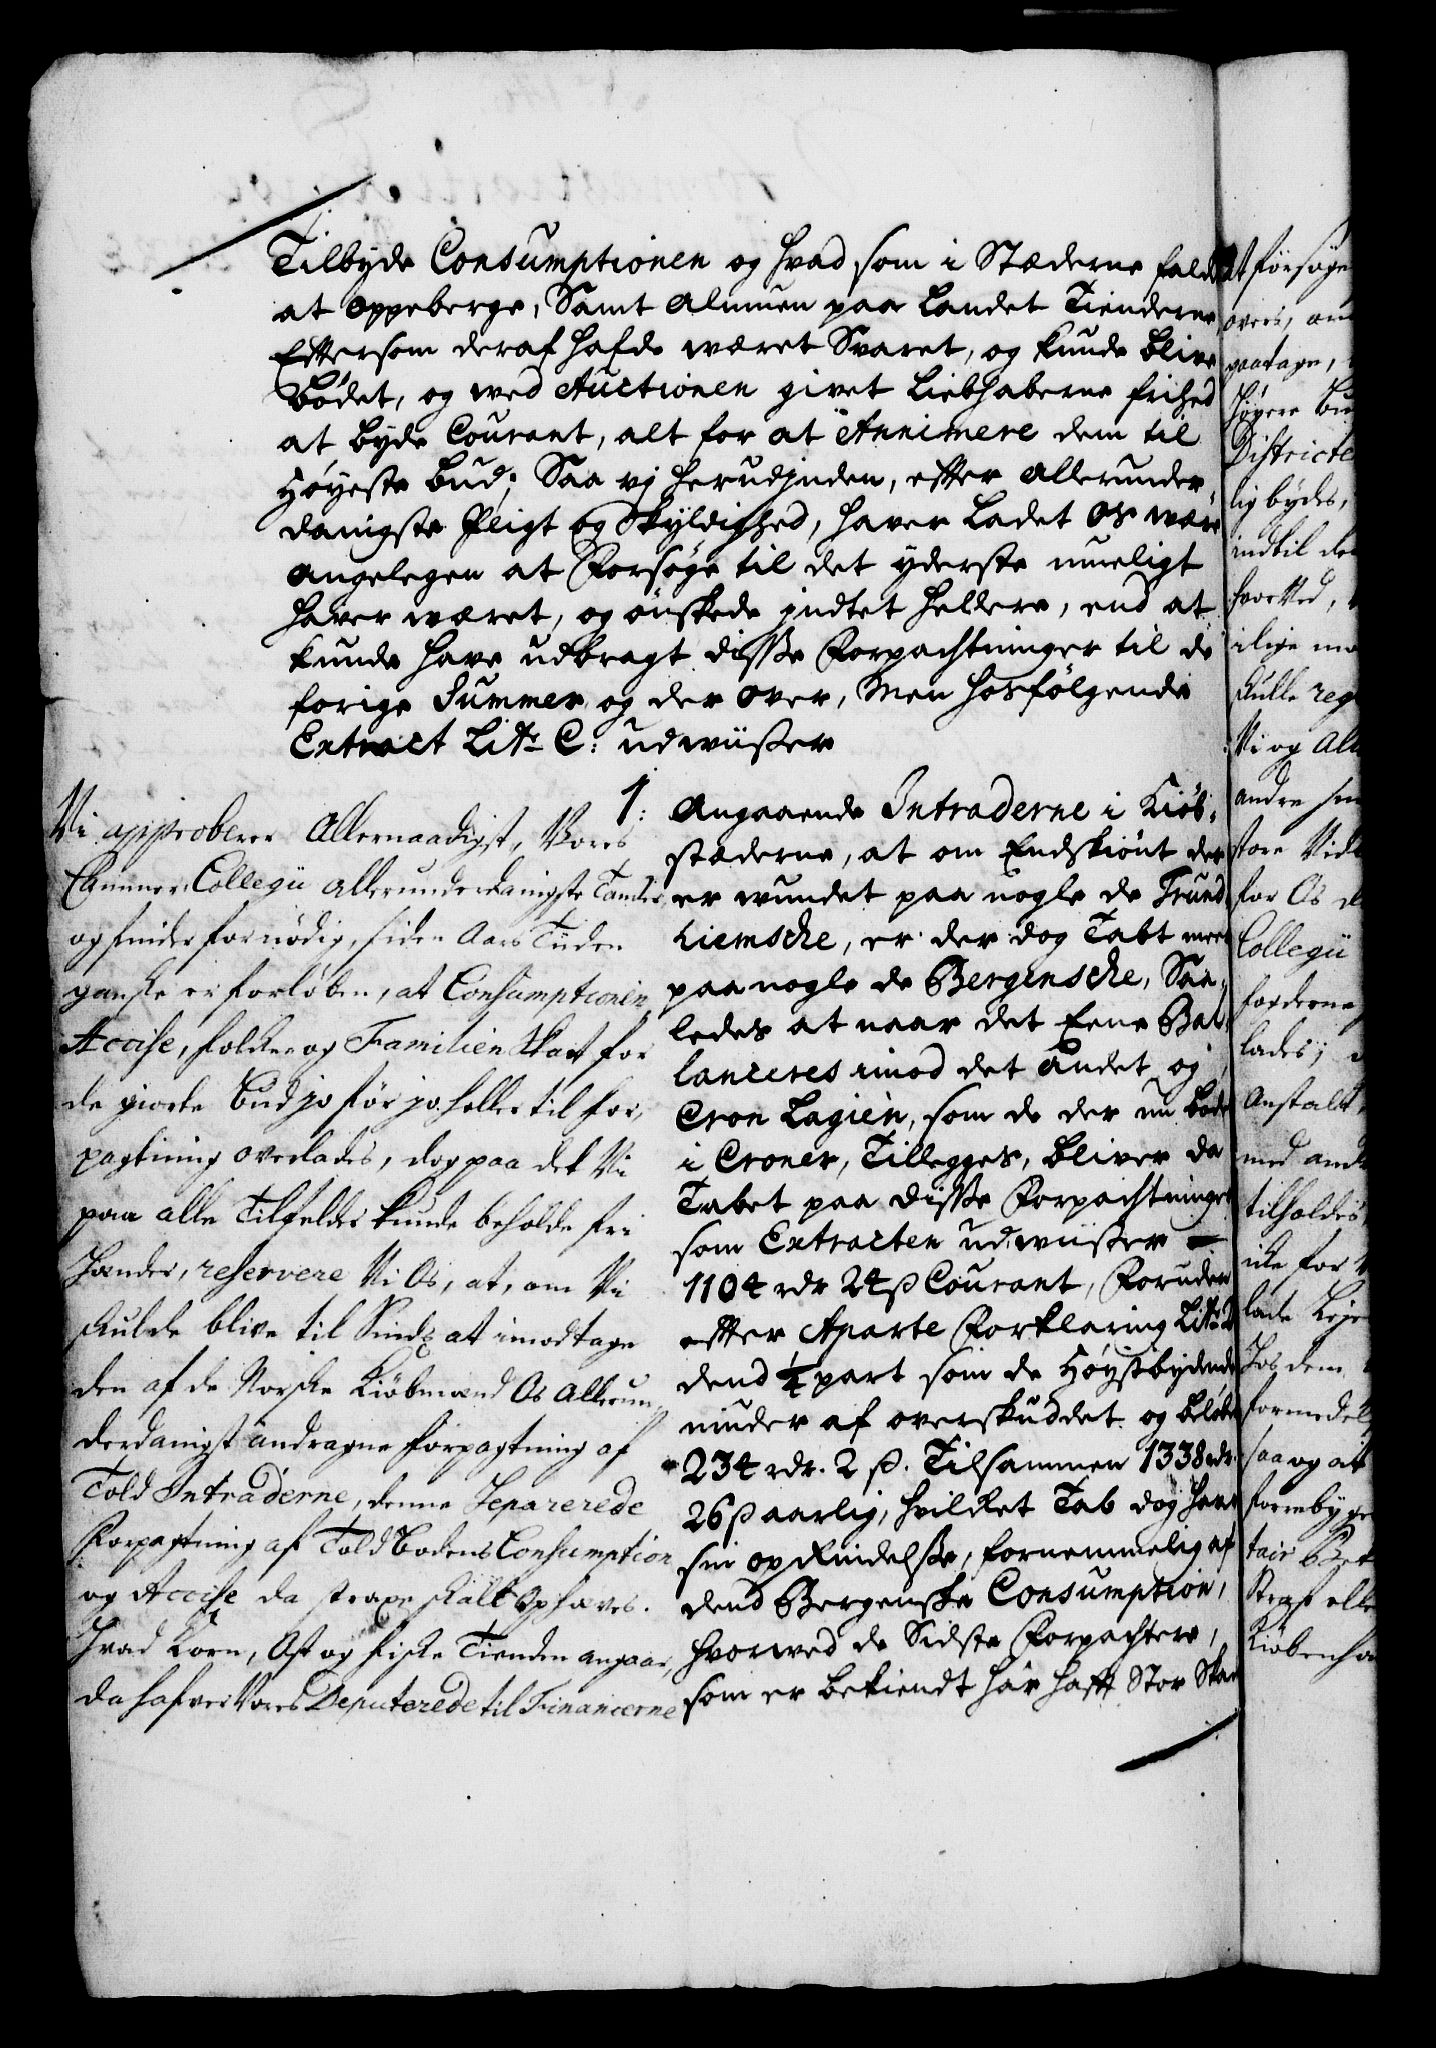 Tilbyde Consumptionen og hvad som i Stæderne fald
at oppeberge, Samt almuen paa Landet Tienderne
Efttersom deraf hafde wæret Svaret, og kunde blive
bödet, og wed Auctionen givet Liebhaberne frihed
at byde Courant, alt for at Annimere dem til
Höyeste bud; Saa vj herudjnden, efter allerunder-
danigste Pligt og Skyldighed, haver Ladet os være
angelegen at Forsöge til det yderste mueligt
haver wæret, og önskede jndtet heller, end at
kunde have udbragt disse Forpachtninger til de
forige Summer og der over, Men hosfölgende
Extract Litr C: udwiißer
1: Angaaende Intraderne i Kiöb-
stæderne, at om Endskiönt der
er wundet paa nogle de Trund-
hiemsche, er der dog Tabt meer
paa nogle de Bergensche, Saa-
ledes at naar det Eene Bal-
lanceres imod det andet og
Cron Lagien, som de der nu bode
i Croner, Tillegges, bliver da
Tabet paa disse Forpachtninger
som Extracten udwiißer
1104 rdr 24 ß Courant, Foruden
efter Aparte Forklaring Litr D
dend 1/4 part som de Höystbydende
niuder af overskuddet og belöber
234 rdr. 2 ß. Tilsammen 1338 rdr.
26 ß aarlig, hvilket Tab dog haver
sin oprindelse, fornemmelig af
dend Bergenske Consumption,
hvorwed de Sidste Forpachtere,
som er bekiendt har hafft Stor Skade
Vi approberer Allernaadigst, Vores
Cammer Collegii allerunderdanigste Tancker
og finder fornödig, siden Aars Tiiden
ganske er forlöben, at Consumptionen,
Accise, folcke og Familien Skatt for
de giorte bud jo för jo heller til for-
pagtning overlades, dog paa det Vi
paa alle Tilfelde kunde beholde fri
Hænder, reservere Vi Os, at, om Vi
skulde blive til Sinds at imodtage
den af de Norske Kiöbmænd Os Allerun-
derdanigst andragne forpagtning af
Told Intraderne, denne Separerede
Forpagtning af Toldbodens Consumption
og Accise da straxe skall ophæves.
Hvad Korn, Ost og fiske Tienden angaar,
da hafver Vores Deputerede til Financerne
at forsöge
overs, om
paatage,
höyere Bu
Districte
lig bydes,
indtil de
hvorved,
ilige ma
skulle reg
Vi og All
andre
store Vid
for Os d
Collegii
forderne
lades;
Anstalt
med and
tilholdes
icke for
lade Leje
Hos dem
formedel
saa og at
forrebyge
tair Bet
Straf elle
Kiöbenha